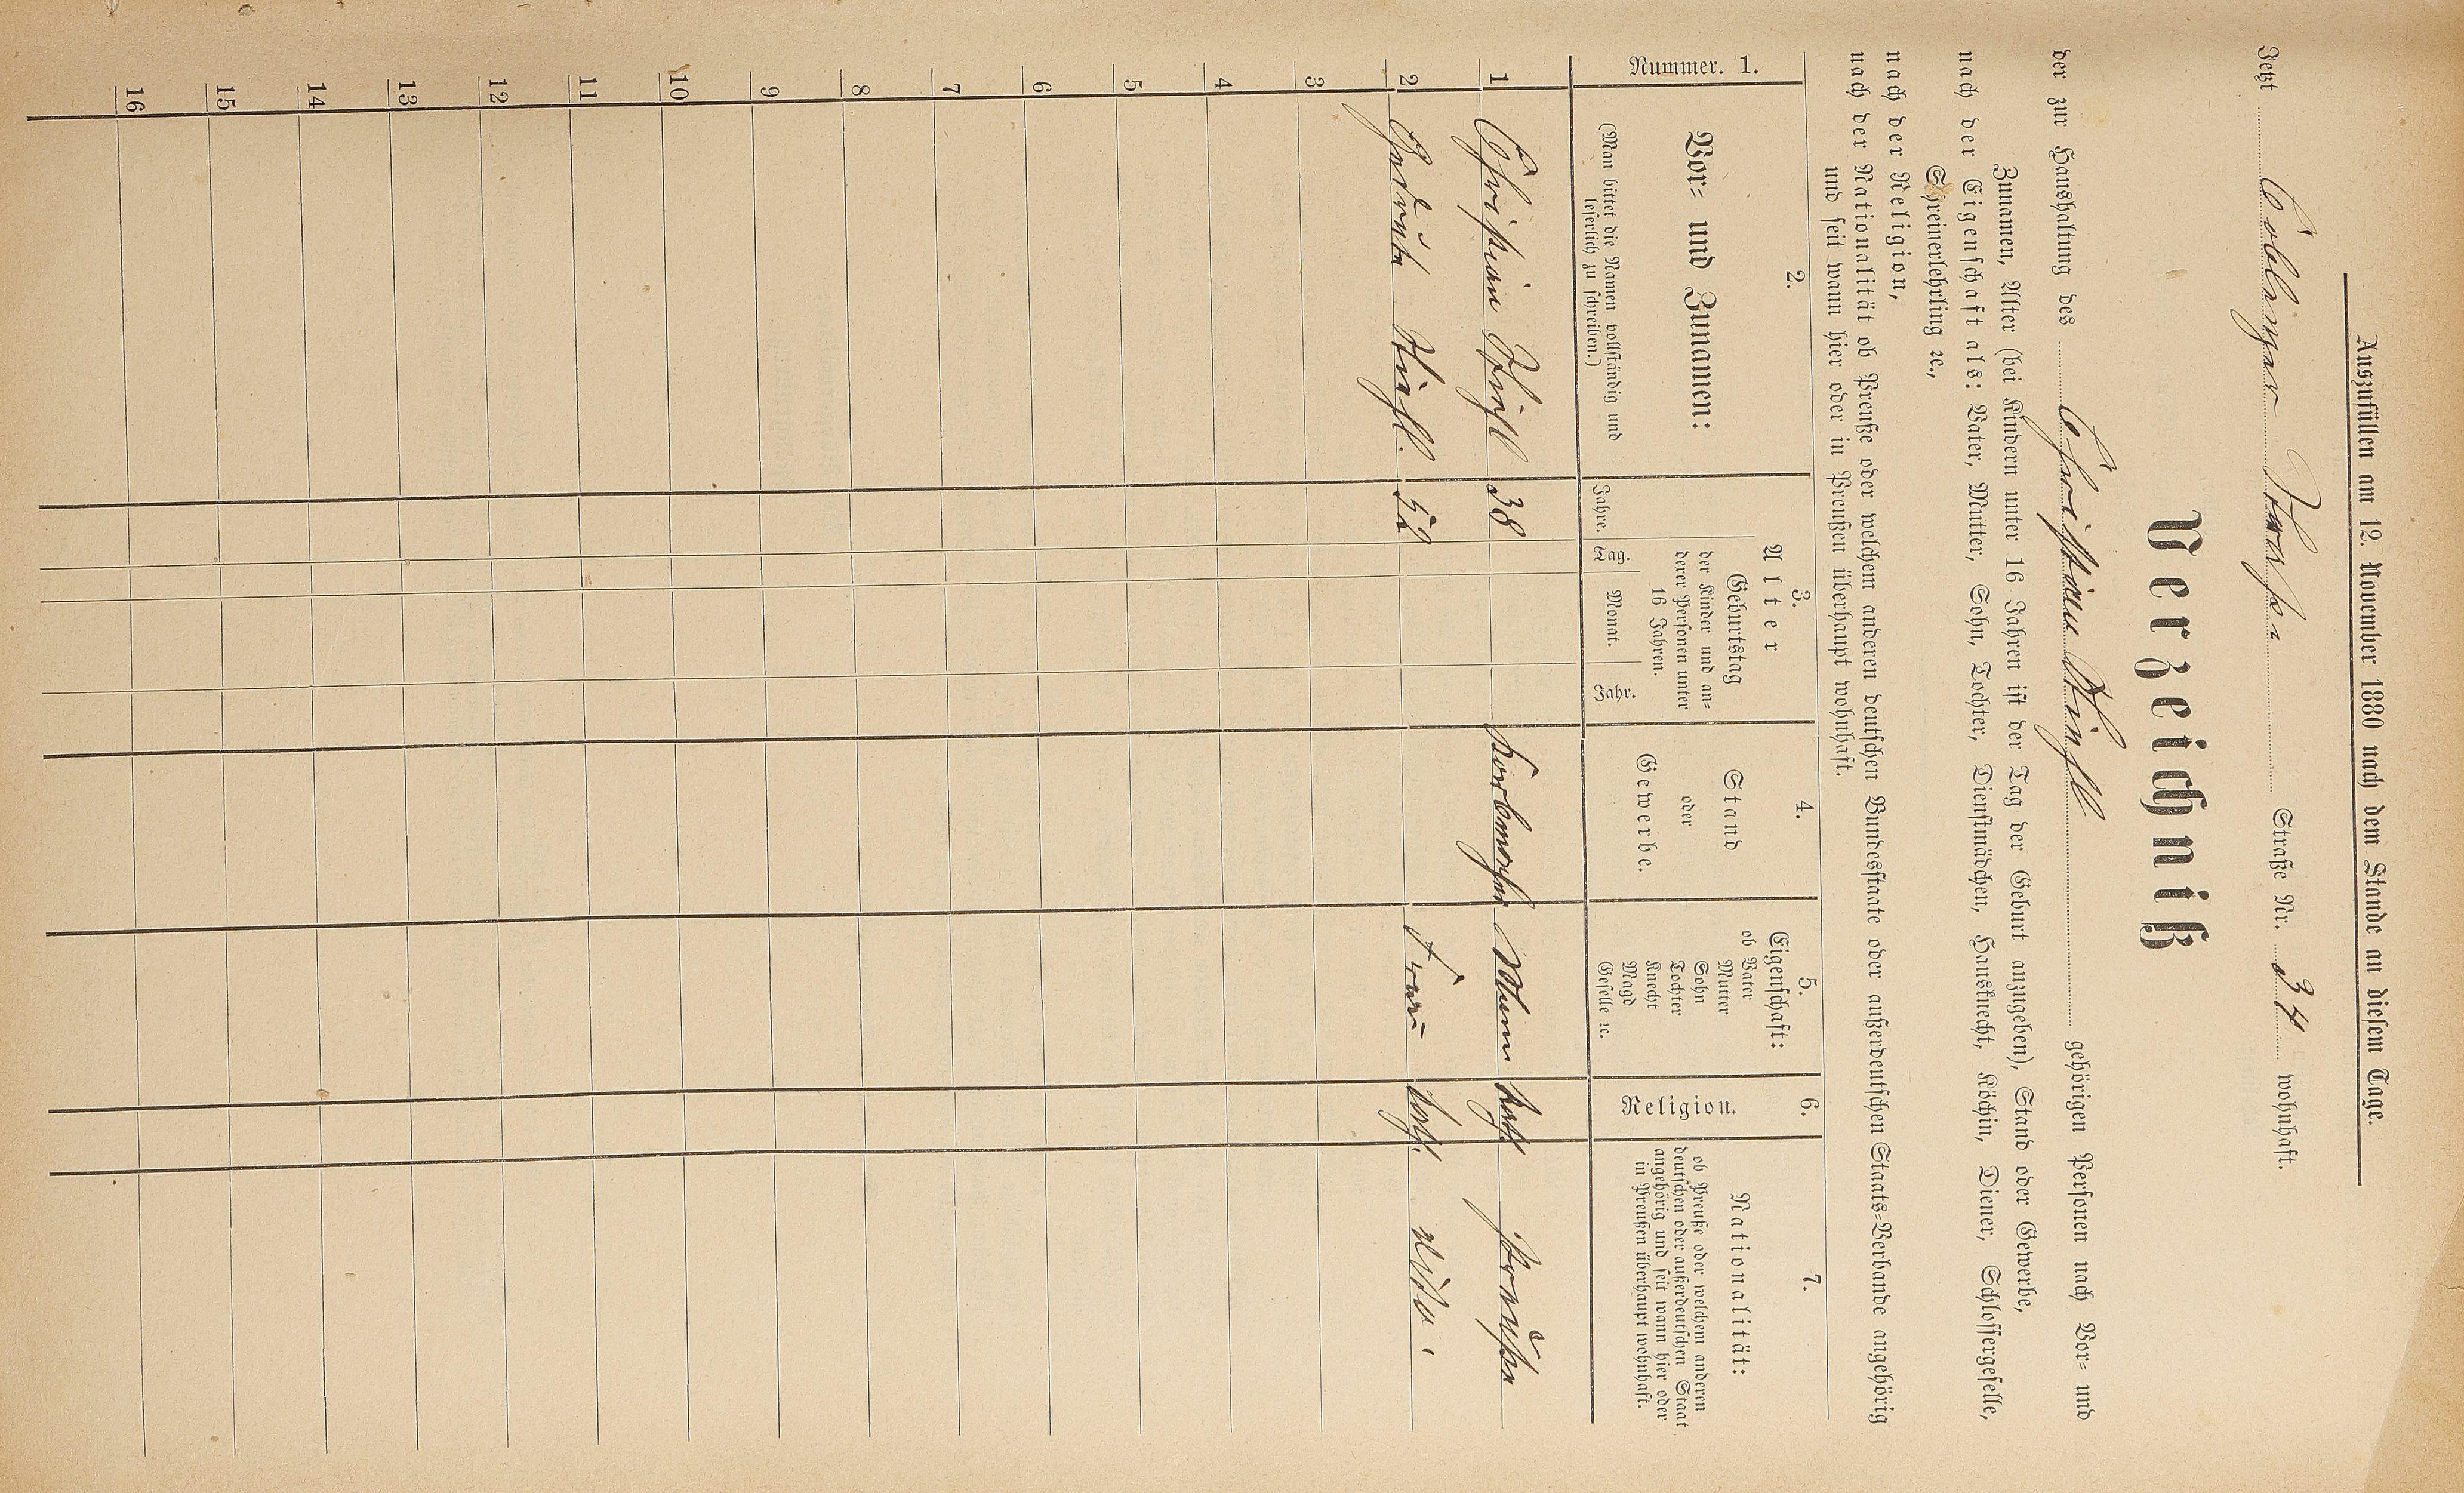 Auszufüllen am 12. November 1880 nach dem Stande an diesem Tage.
Jetzt Coblenzer Straße Straße Nr. 34 wohnhaft.
Verzeichniß
der zur Haushaltung des Christian gehörigen Personen nach Vor- und
Zunamen, Alter (bei Kindern unter 16 Jahren ist der Tag der Geburt anzugeben), Stand oder Gewerbe,
nach der Eigenschaft als: Vater, Mutter, Sohn, Tochter, Dienstmädchen, Hausknecht, Köchin, Diener, Schlossergeselle,
Schreinerlehrling ꝛc.,
nach der Religion,
nach der Nationalität ob Preuße oder welchem anderen deutschen Bundesstaate oder außerdeutschen Staats-Verbande angehörig
und seit wann hier oder in Preußen überhaupt wohnhaft.
Nummer. 1.
2.
Vor- und Zunamen:
(Man bittet die Namen vollständig und
leserlich zu schreiben.)
3.
Alter
Jahre.
Geburtstag
der Kinder und an-
derer Personen unter
16 Jahren.
Tag. Monat. Jahr.
4.
Stand
oder
Gewerbe.
5.
Eigenschaft:
ob Vater
Mutter
Sohn
Tochter
Knecht
Magd
Geselle ꝛc.
6.
Religion.
7.
Nationalität:
ob Preuße oder welchem anderen
deutschen oder außerdeutschen Staat
angehörig und seit wann hier oder
in Preußen überhaupt wohnhaft.
1 Christian 38 Korbmacher Mann kath. Preuße
2 52 Frau kath. dito
3
4
5
6
7
8
9
10
11
12
13
14
15
16